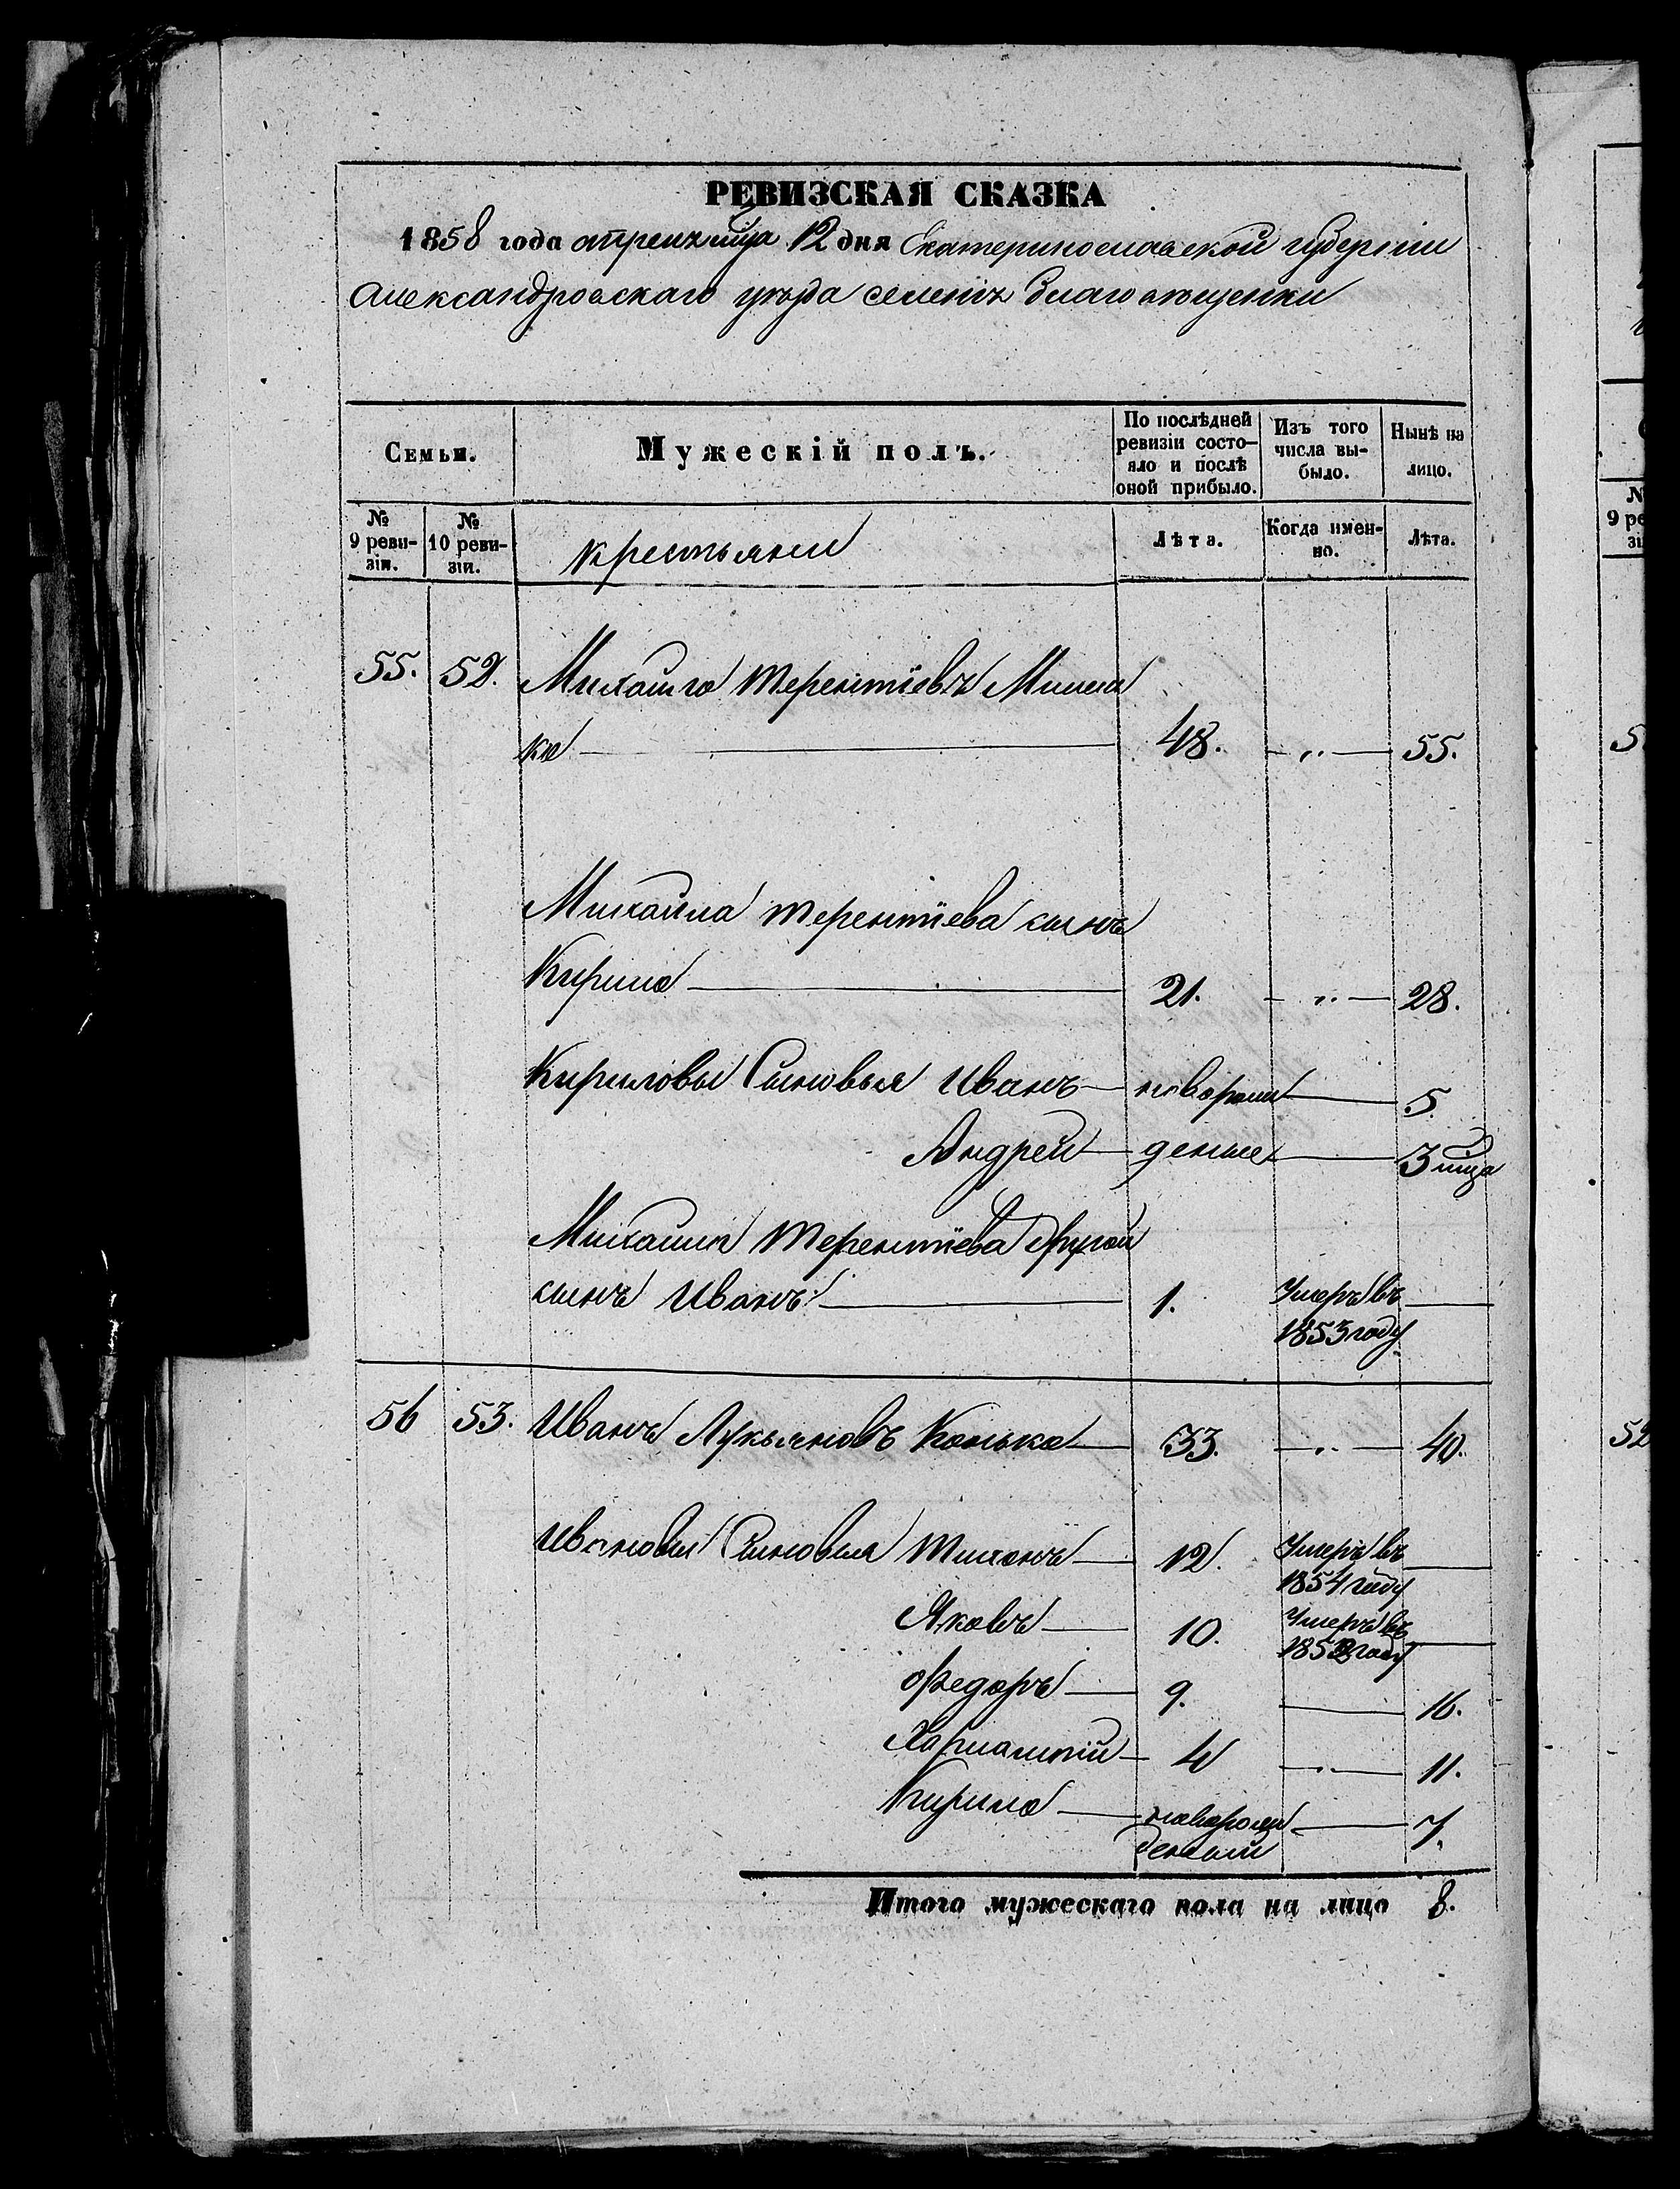 РЕВИЗСКАЯ СКАЗКА
1858 года апреля мца 12 дня Екатеринославской губерніи
Александровскаго уѣзда селенія Благовѣщенки
Семьи.
Мужескій полъ.
По послѣдней ревизіи состояло и послѣ оной прибыло.
Изъ того числа выбыло.
Нынѣ на лицо.
№ 9 ревизіи.
№ 10 ревизіи.
крестьяни
Лѣта.
Когда именно.
Лѣта.
55. 52. Михайло Терентіевъ
ко 48. „ 55.
Михайла Терентіева сынъ
Кирило 21. „ 28.
Кириловы Сыновья Иванъ новорож 5.
Андрей денные 3 мца
Михайла Терентіева другой
сынъ Иванъ 1. Умеръ въ
1853 году
56 53. Иванъ Лукьяновъ Конько 33. „ 40.
Ивановы Сыновья Тихонъ 12. Умеръ въ
1854 году
Яковъ 10. Умеръ въ
году
Федоръ 9. 16.
Харлампій 4 „ 11.
Кирило новорож 7.
денный
Итого мужескаго пола на лицо 8.
№
9 ре
зі
5
52